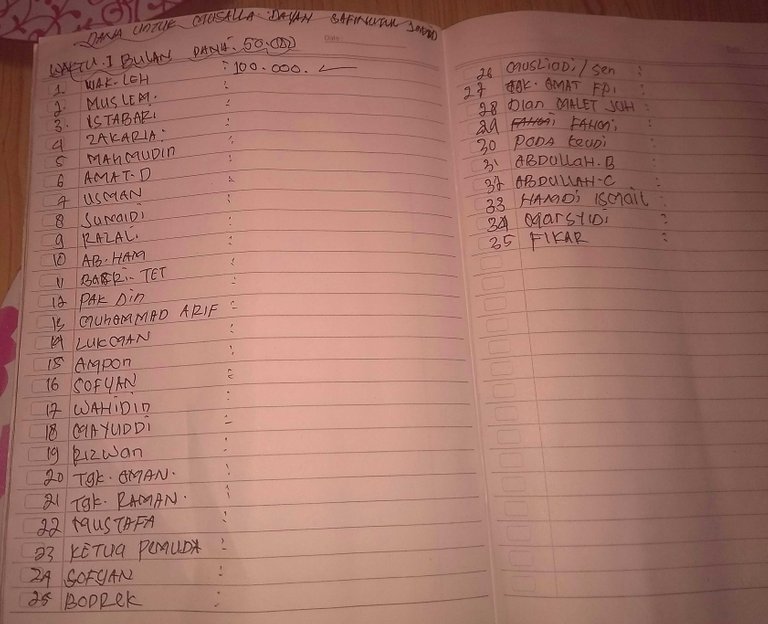 DANA UNTUK MUSALLA DAYAH SAFINATUL
WAKTU. 1 BULAN DANA. 50.000
1. WAK. LEH : 100.000.
2. MUSLEM. :
3. ISTABARI :
4 ZAKARIA. :
5 MAHMUDIN :
6 AMAT. D :
7 USMAN :
8 JUNAIDI :
9 RAZALI. :
10 AB. HAM :
11 BAERI. TET :
12 PAK DIN :
13 MUHAMMAD ARIF :
14 LUKMAN :
15 AMPON :
16 SOFYAN :
17 WAHIDIN :
18 MAYUDDI :
19 RIZWAN :
20 TGK. AMAN. :
21 TGK. RAMAN. :
22 MUSTAFA :
23 KETUA PEMUDA :
24 SOFYAN :
25 BODREK :
Date:
26 MUSLIADI / SEN :
27 TGK. AMAT FPI :
28 DIAN MALET JUH :
29 FAHMI :
30 PODA KEUDI :
31 ABDULLAH. B :
32 ABDULLAH. C :
33 HAMDI ISMAIL :
34 MARSYIDI :
35 FIKAR :